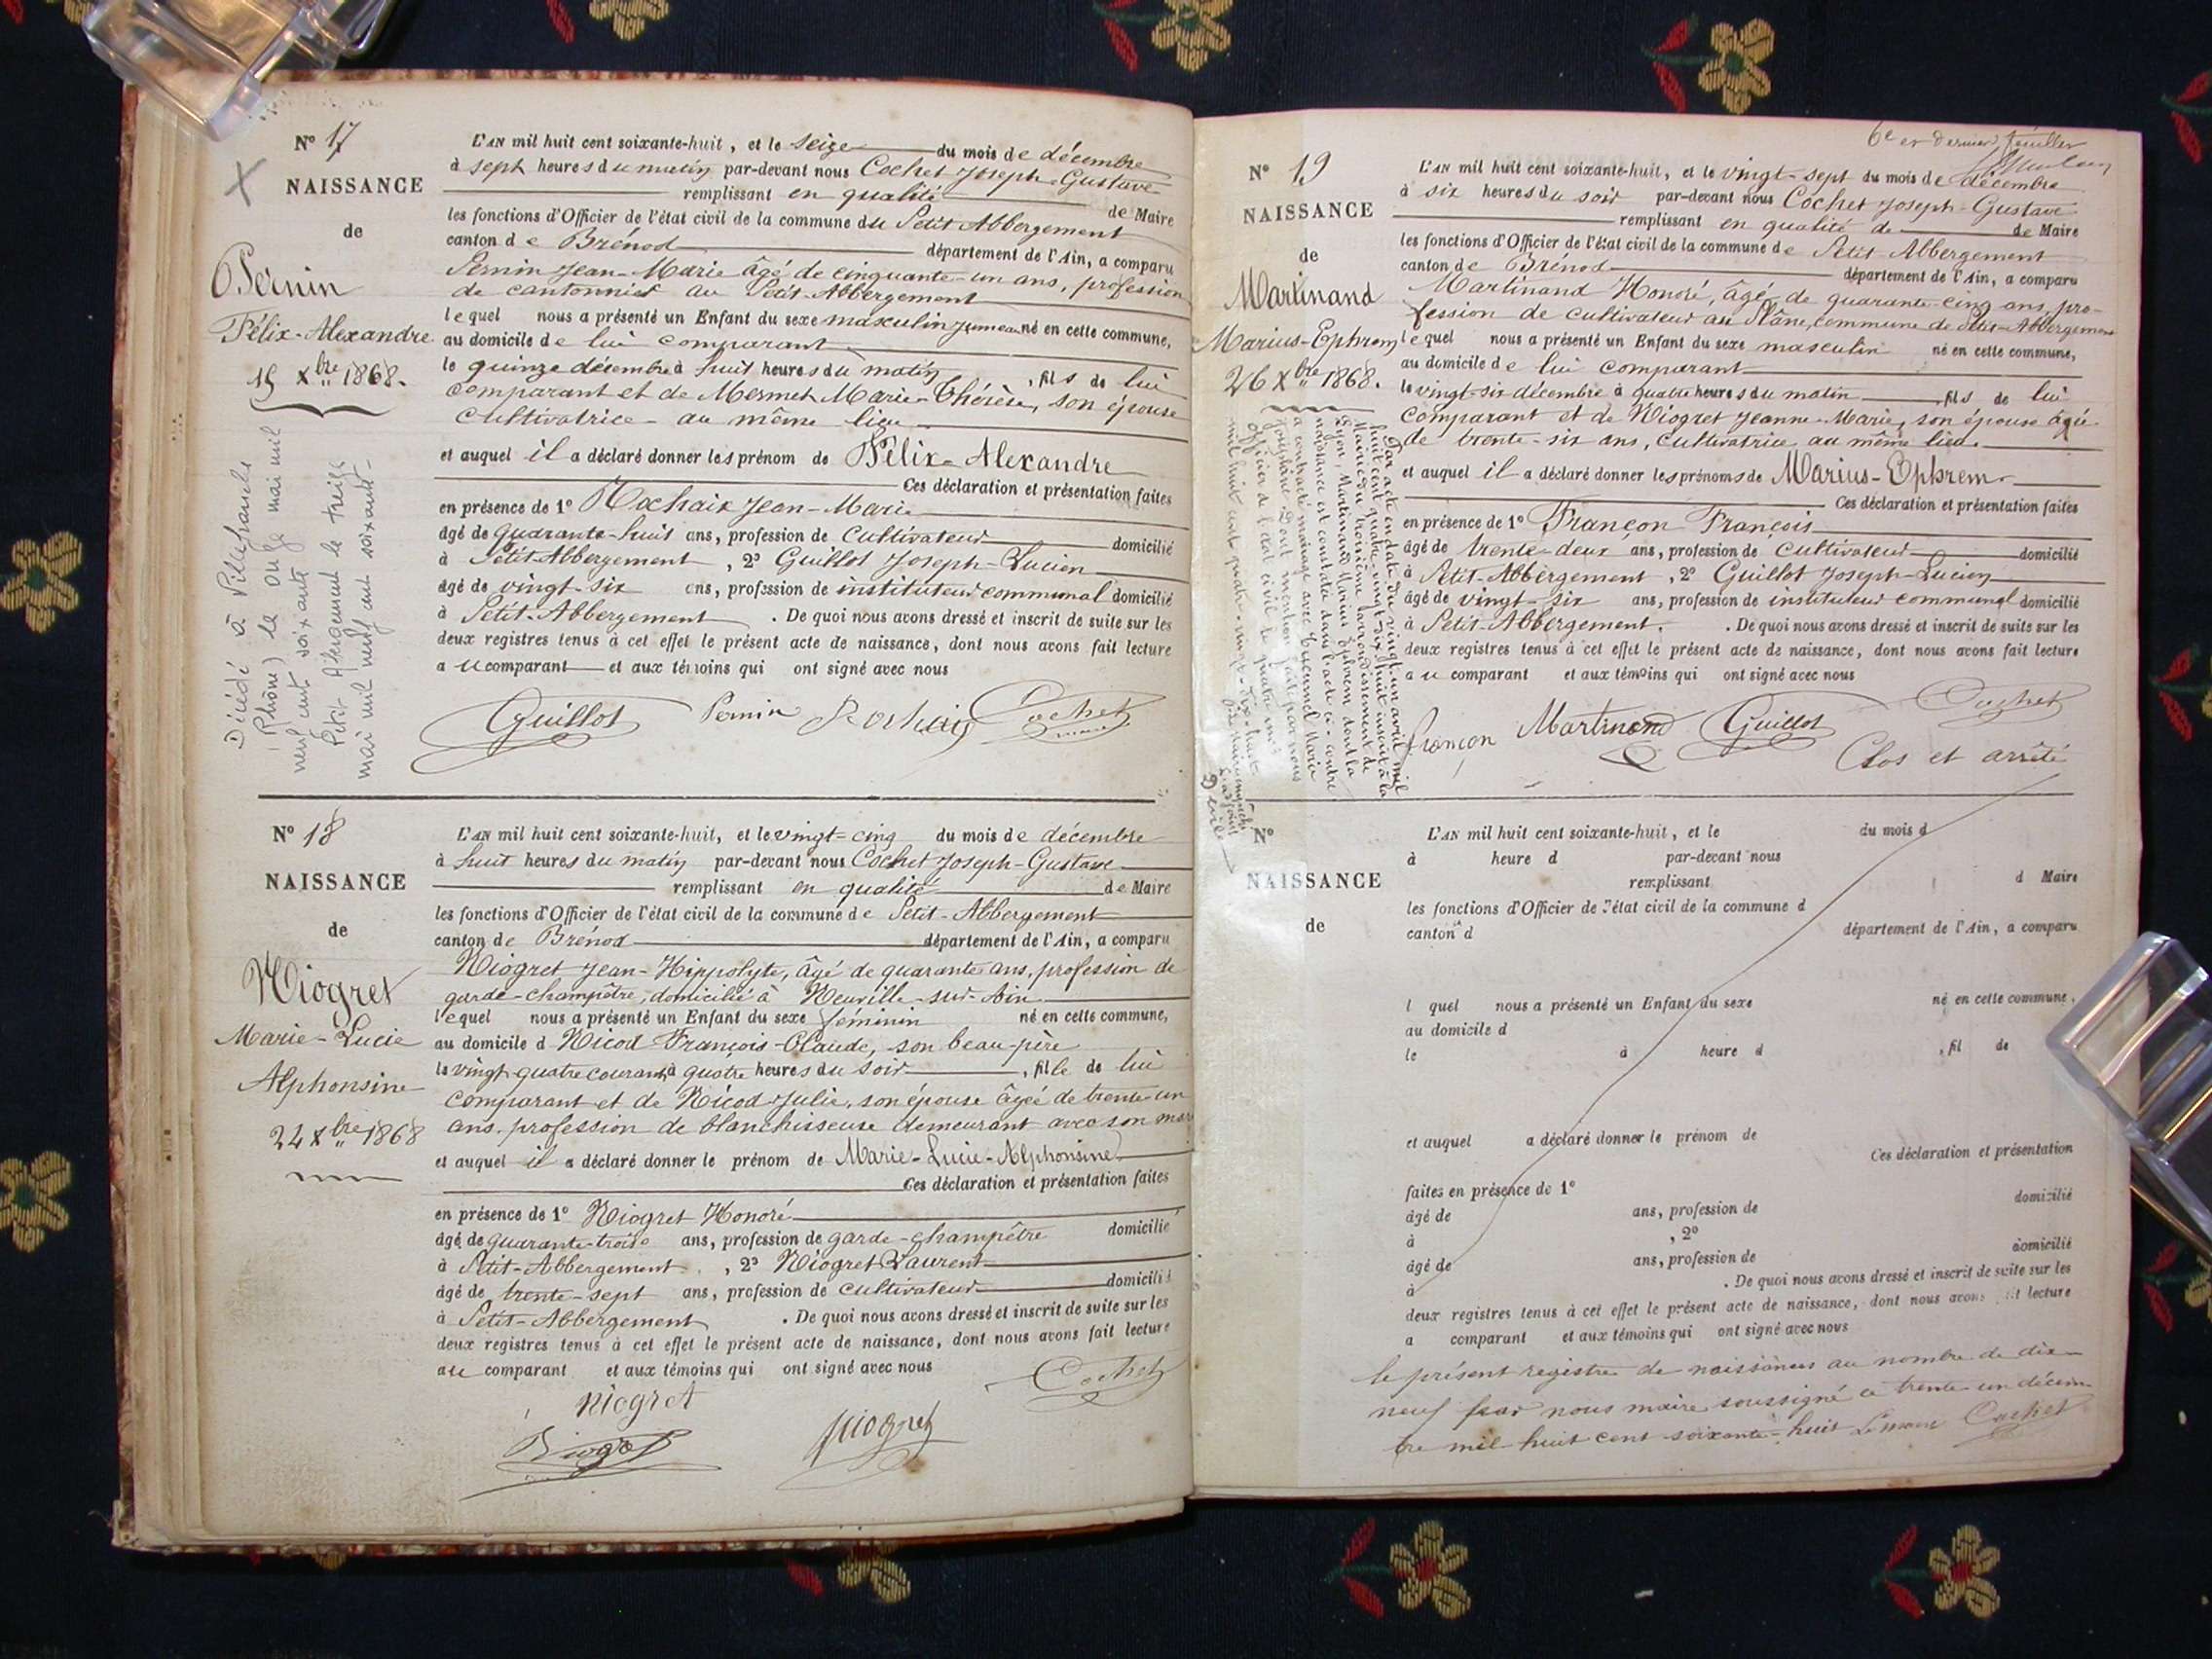 Nº 17
NAISSANCE
de
Pernin
Félix-Alexandre
15 Xbre 1868.
Décédé à Villefranche
(Rhône) le onze mai mil
neuf cent soixante
Petit Abergement le treize
mai mil neuf cent soixante
L'AN mil huit cent soixante-huit, et le seize du mois de décembre
à sept heures du matin par-devant nous Cochet Joseph-Gustave
remplissant en qualité de Maire
les fonctions d'Officier de l'état civil de la commune du Petit Abbergement
canton de Brénod département de l'Ain, a comparu
Pernin Jean-Marie âgé de cinquante-un ans, profession
de cantonnier au Petit-Abbergement
lequel nous a présenté un Enfant du sexe masculin jumeau né en cette commune,
au domicile de lui comparant
le quinze décembre à huit heures du matin, fils de lui
comparant et de Mermet Marie-Thérèse, son épouse
cultivatrice au même lieu
et auquel il a déclaré donner les prénom de Félix-Alexandre
Ces déclaration et présentation faites
en présence de 1º Rochaix Jean-Marie
âgé de quarante-huit ans, profession de cultivateur domicilié
à Petit-Abbergement, 2º Guillot Joseph-Lucien
âgé de vingt-six ans, profession de instituteur communal domicilié
à Petit-Abbergement. De quoi nous avons dressé et inscrit de suite sur les
deux registres tenus à cet effet le présent acte de naissance, dont nous avons fait lecture
au comparant et aux témoins qui ont signé avec nous
Guillot Pernin Rochaix Cochet
Nº 18
NAISSANCE
de
Niogret
Marie-Lucie
Alphonsine
24 Xbre 1868
L'AN mil huit cent soixante-huit, et le vingt-cinq du mois de décembre
à huit heures du matin par-devant nous Cochet Joseph-Gustave
remplissant en qualité de Maire
les fonctions d'Officier de l'état civil de la commune de Petit-Abbergement
canton de Brénod département de l'Ain, a comparu
Niogret Jean-Hippolyte, âgé de quarante ans, profession de
garde-champêtre, domicilié à Neuville-sur-Ain
lequel nous a présenté un Enfant du sexe féminin né en cette commune,
au domicile d Nicod François-Claude, son beau-père
le vingt-quatre courant à quatre heures du soir, fille de lui
comparant et de Nicod Julie, son épouse âgée de trente-un
ans, profession de blanchisseuse demeurant avec son mari
et auquel il a déclaré donner le prénom de Marie-Lucie-Alphonsine
Ces déclaration et présentation faites
en présence de 1º Niogret Honoré
âgé de quarante-trois ans, profession de garde-champêtre domicilié
à Petit-Abbergement, 2º Niogret Laurent
âgé de trente-sept ans, profession de cultivateur domicilié
à Petit-Abbergement. De quoi nous avons dressé et inscrit de suite sur les
deux registres tenus à cet effet le présent acte de naissance, dont nous avons fait lecture
au comparant et aux témoins qui ont signé avec nous
Cochet
Niogret
Niogret Niogret
6e et dernier feuillet
Nº 19
NAISSANCE
de
Martinand
Marius-Ephrem
26 Xbre 1868.
Par acte en date du vingt-un avril mil
huit cent quatre-vingt-dix-huit inscrit à la
Mairie du troisième arrondissement de
Lyon, Martinand Marius Ephrem dont la
naissance est constatée dans l'acte ci-contre
a contracté mariage avec Marie
Dont mention faite par nous
officier de l'état civil le quatre mai
mil huit cent quatre-vingt-dix-huit
L'AN mil huit cent soixante-huit, et le vingt-sept du mois de décembre
à six heures du soir par-devant nous Cochet Joseph-Gustave
remplissant en qualité de de Maire
les fonctions d'Officier de l'état civil de la commune de Petit-Abbergement
canton de Brénod département de l'Ain, a comparu
Martinand Honoré, âgé de quarante-cinq ans, pro-
fession de cultivateur au Plâne, commune de Petit-Abbergement
lequel nous a présenté un Enfant du sexe masculin né en cette commune,
au domicile de lui comparant
le vingt-six décembre à quatre heures du matin, fils de lui
comparant et de Niogret Jeanne-Marie, son épouse âgée
de trente-six ans, cultivatrice au même lieu.
et auquel il a déclaré donner les prénoms de Marius-Ephrem
Ces déclaration et présentation faites
en présence de 1º Françon François
âgé de trente-deux ans, profession de cultivateur domicilié
à Petit-Abbergement, 2º Guillot Joseph-Lucien
âgé de vingt-six ans, profession de instituteur communal domicilié
à Petit-Abbergement. De quoi nous avons dressé et inscrit de suite sur les
deux registres tenus à cet effet le présent acte de naissance, dont nous avons fait lecture
au comparant et aux témoins qui ont signé avec nous
Françon Martinand Guillot Cochet
Clos et arrêté
Nº
NAISSANCE
de
L'AN mil huit cent soixante-huit, et le du mois d
à heure d par-devant nous
remplissant d Maire
les fonctions d'Officier de l'état civil de la commune d
canton d département de l'Ain, a comparu
l quel nous a présenté un Enfant du sexe né en cette commune,
au domicile d
le à heure d , fil de
et auquel a déclaré donner le prénom de
Ces déclaration et présentation
faites en présence de 1º domicilié
âgé de ans, profession de
à , 2º
âgé de ans, profession de domicilié
à . De quoi nous avons dressé et inscrit de suite sur les
deux registres tenus à cet effet le présent acte de naissance, dont nous avons fait lecture
a comparant et aux témoins qui ont signé avec nous
le présent registre de naissances au nombre de dix-
neuf par nous maire soussigné ce trente-un décem-
bre mil huit cent soixante-huit Le maire Cochet